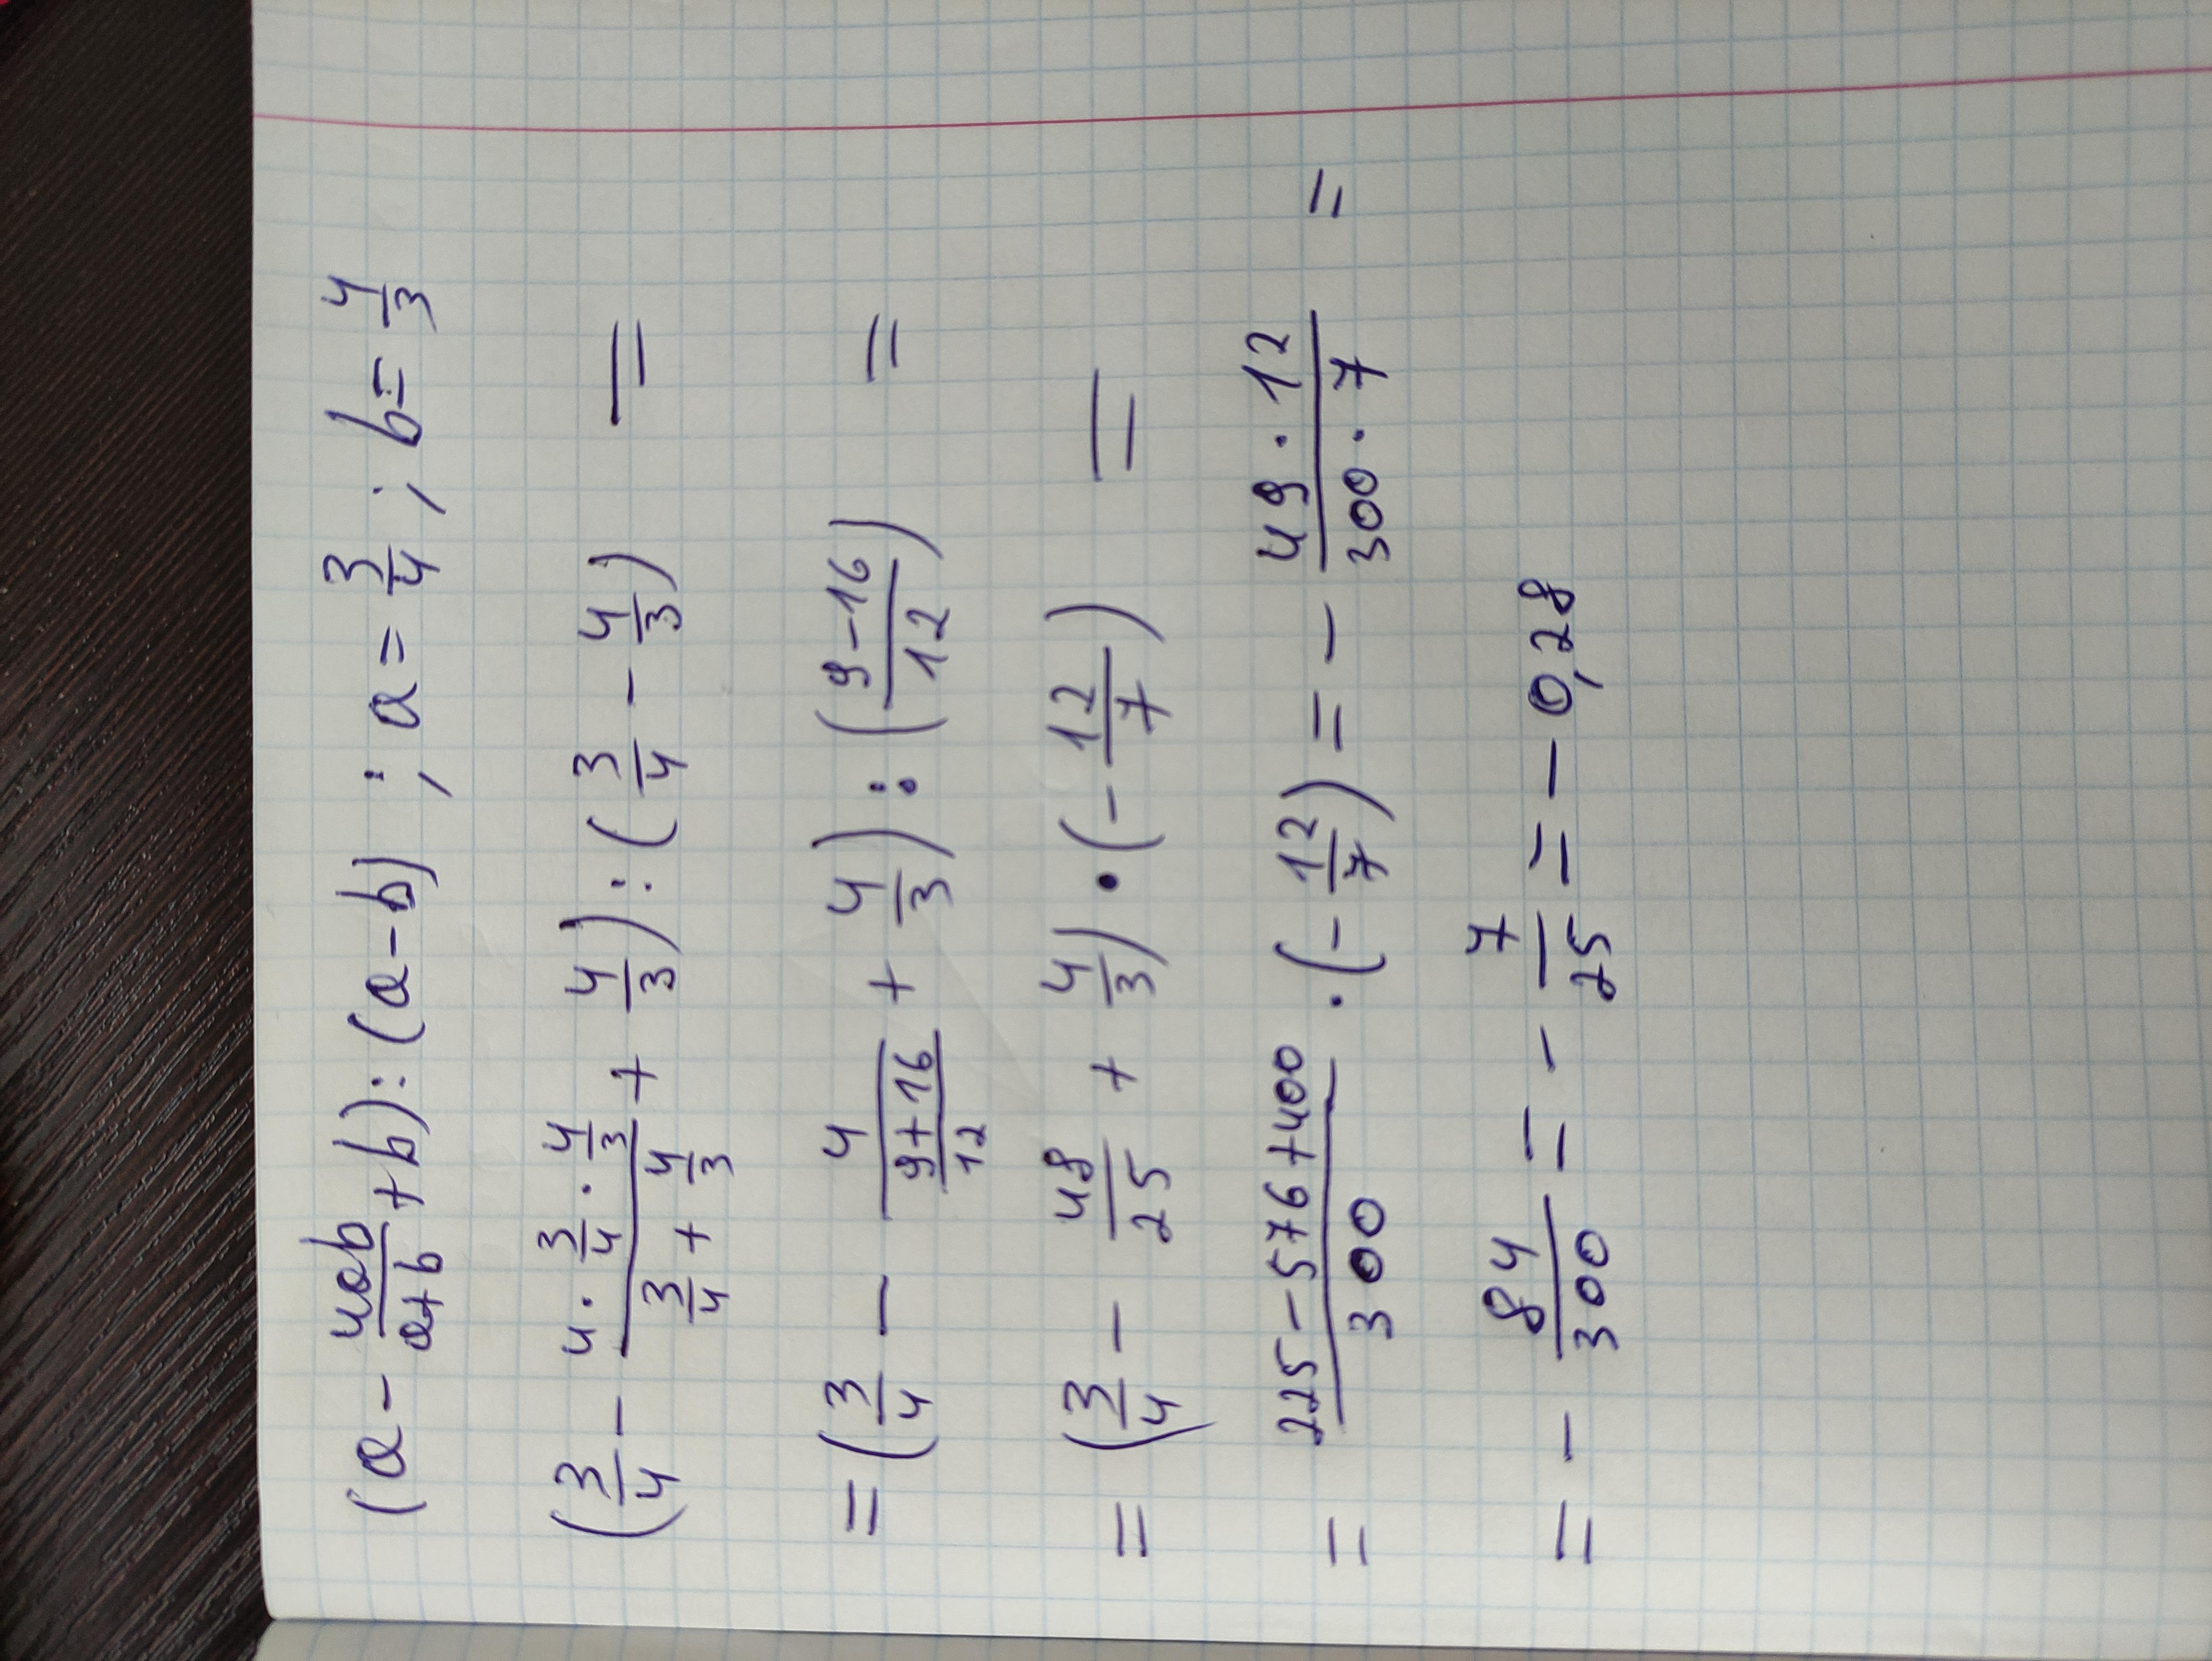 (a - 4ab/(a+b) + b) : (a - b) ; a = 3/4 ; b = 4/3
(3/4 - (4 · 3/4 · 4/3)/(3/4 + 4/3) + 4/3) : (3/4 - 4/3) =
= (3/4 - 4/((9+16)/12) + 4/3) : ((9-16)/12) =
= (3/4 - 48/25 + 4/3) · (-12/7) =
= (225 - 576 + 400)/300 · (-12/7) = - (49 · 12)/(300 · 7) =
= - 84/300 = - 7/25 = - 0,28